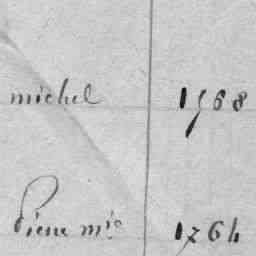 michel 1568
Piere mis 1764